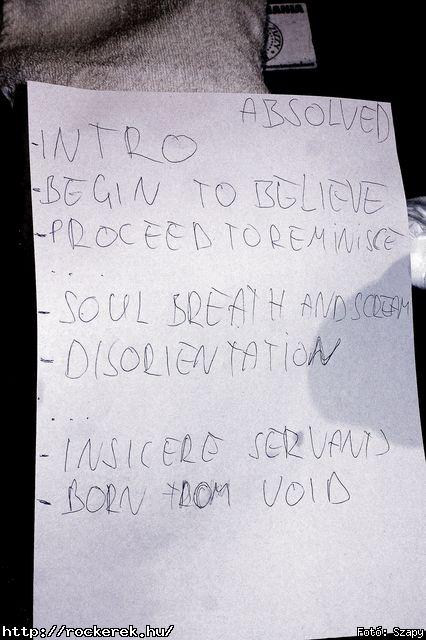 ABSOLVED
- INTRO
- BEGIN TO BELIEVE
- PROCEED TO REMINISCE
. . .
- SOUL BREATH AND SCREAM
- DISORIENTATION
. . .
- INSICERE SERVANTS
- BORN FROM VOID
http://rockerek.hu/
Fotó: Szapy